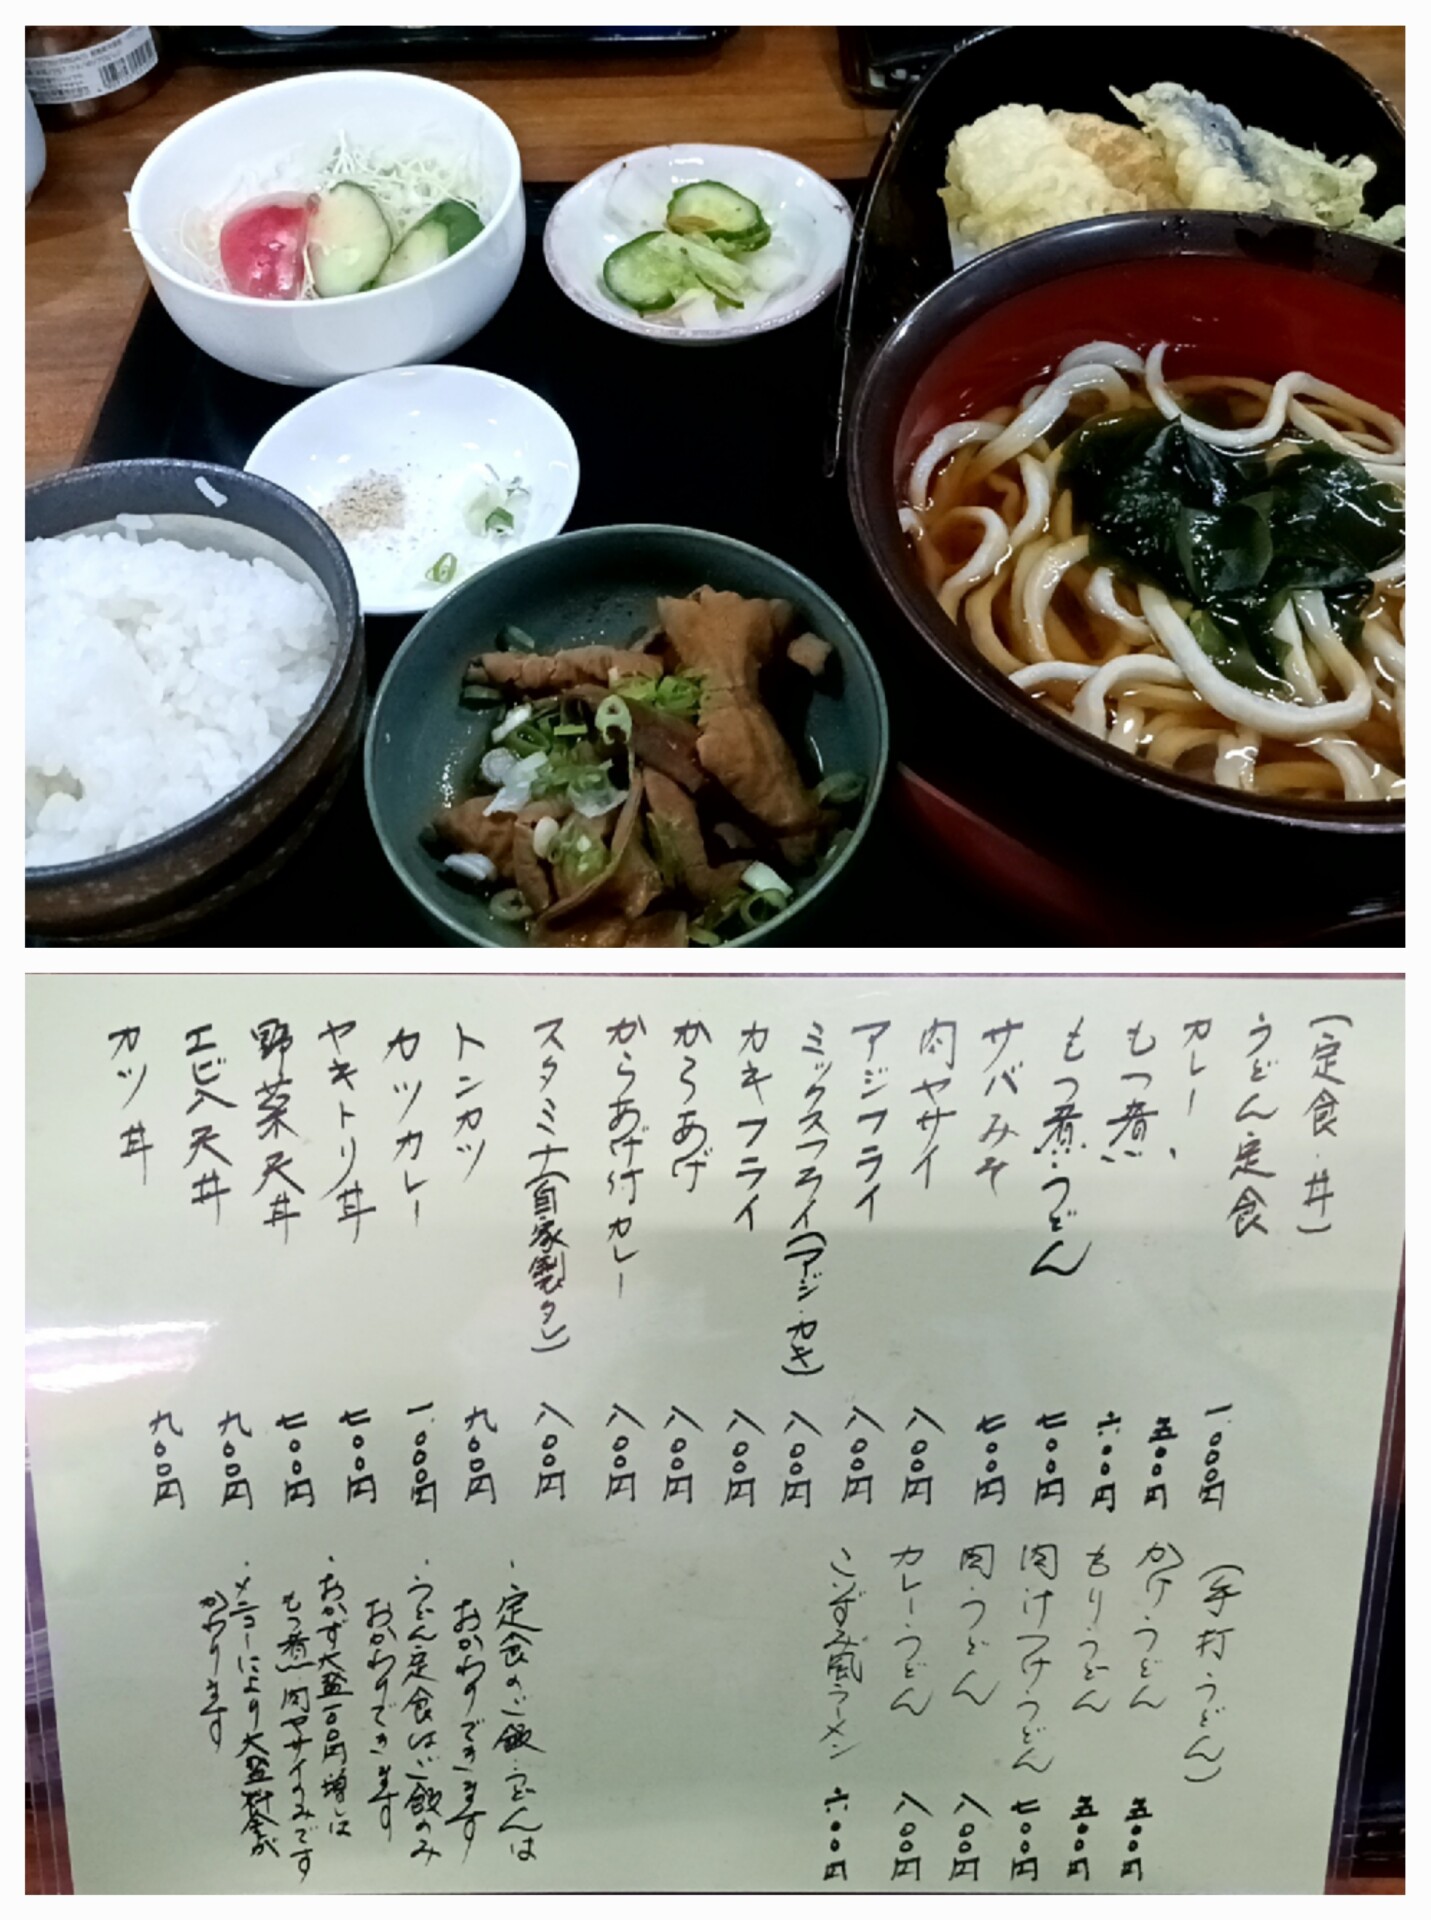 (定食・丼)
うどん定食 一、〇〇〇円
カレー 五〇〇円
もつ煮 六〇〇円
もつ煮・うどん 七〇〇円
サバみそ 七〇〇円
肉ヤサイ 八〇〇円
アジフライ 八〇〇円
ミックスフライ(アジ・カキ) 八〇〇円
カキフライ 八〇〇円
からあげ 八〇〇円
からあげ付カレー 八〇〇円
スタミナ(自家製タレ) 八〇〇円
トンカツ 九〇〇円
カツカレー 一、〇〇〇円
ヤキトリ丼 七〇〇円
野菜天丼 七〇〇円
エビ入天丼 九〇〇円
カツ丼 九〇〇円
(手打・うどん)
かけ・うどん 五〇〇円
もり・うどん 五〇〇円
肉汁つけ・うどん 七〇〇円
肉・うどん 八〇〇円
カレー・うどん 八〇〇円
こいずみ風ラーメン 六〇〇円
・定食のご飯・うどんは
おかわりできます
・うどん定食はご飯のみ
おかわりできます
・おかず大盛一〇〇円増しは
もつ煮・肉ヤサイのみです
・メニューにより大盛料金が
かわります